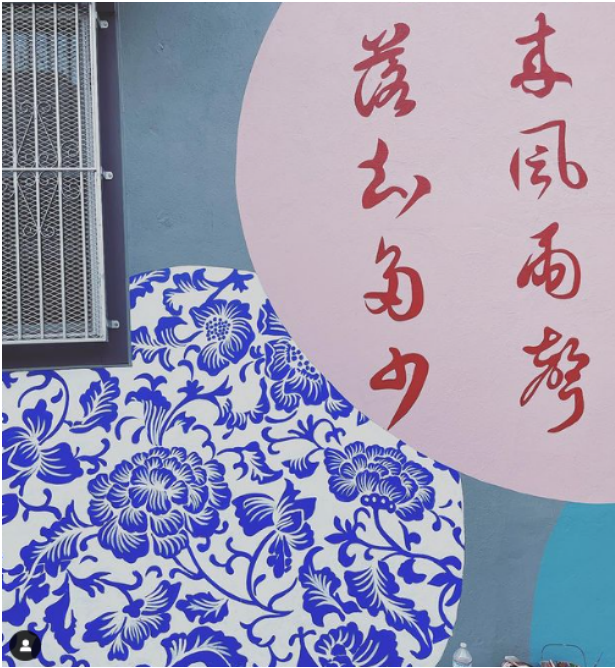 來風雨聲
落知多少